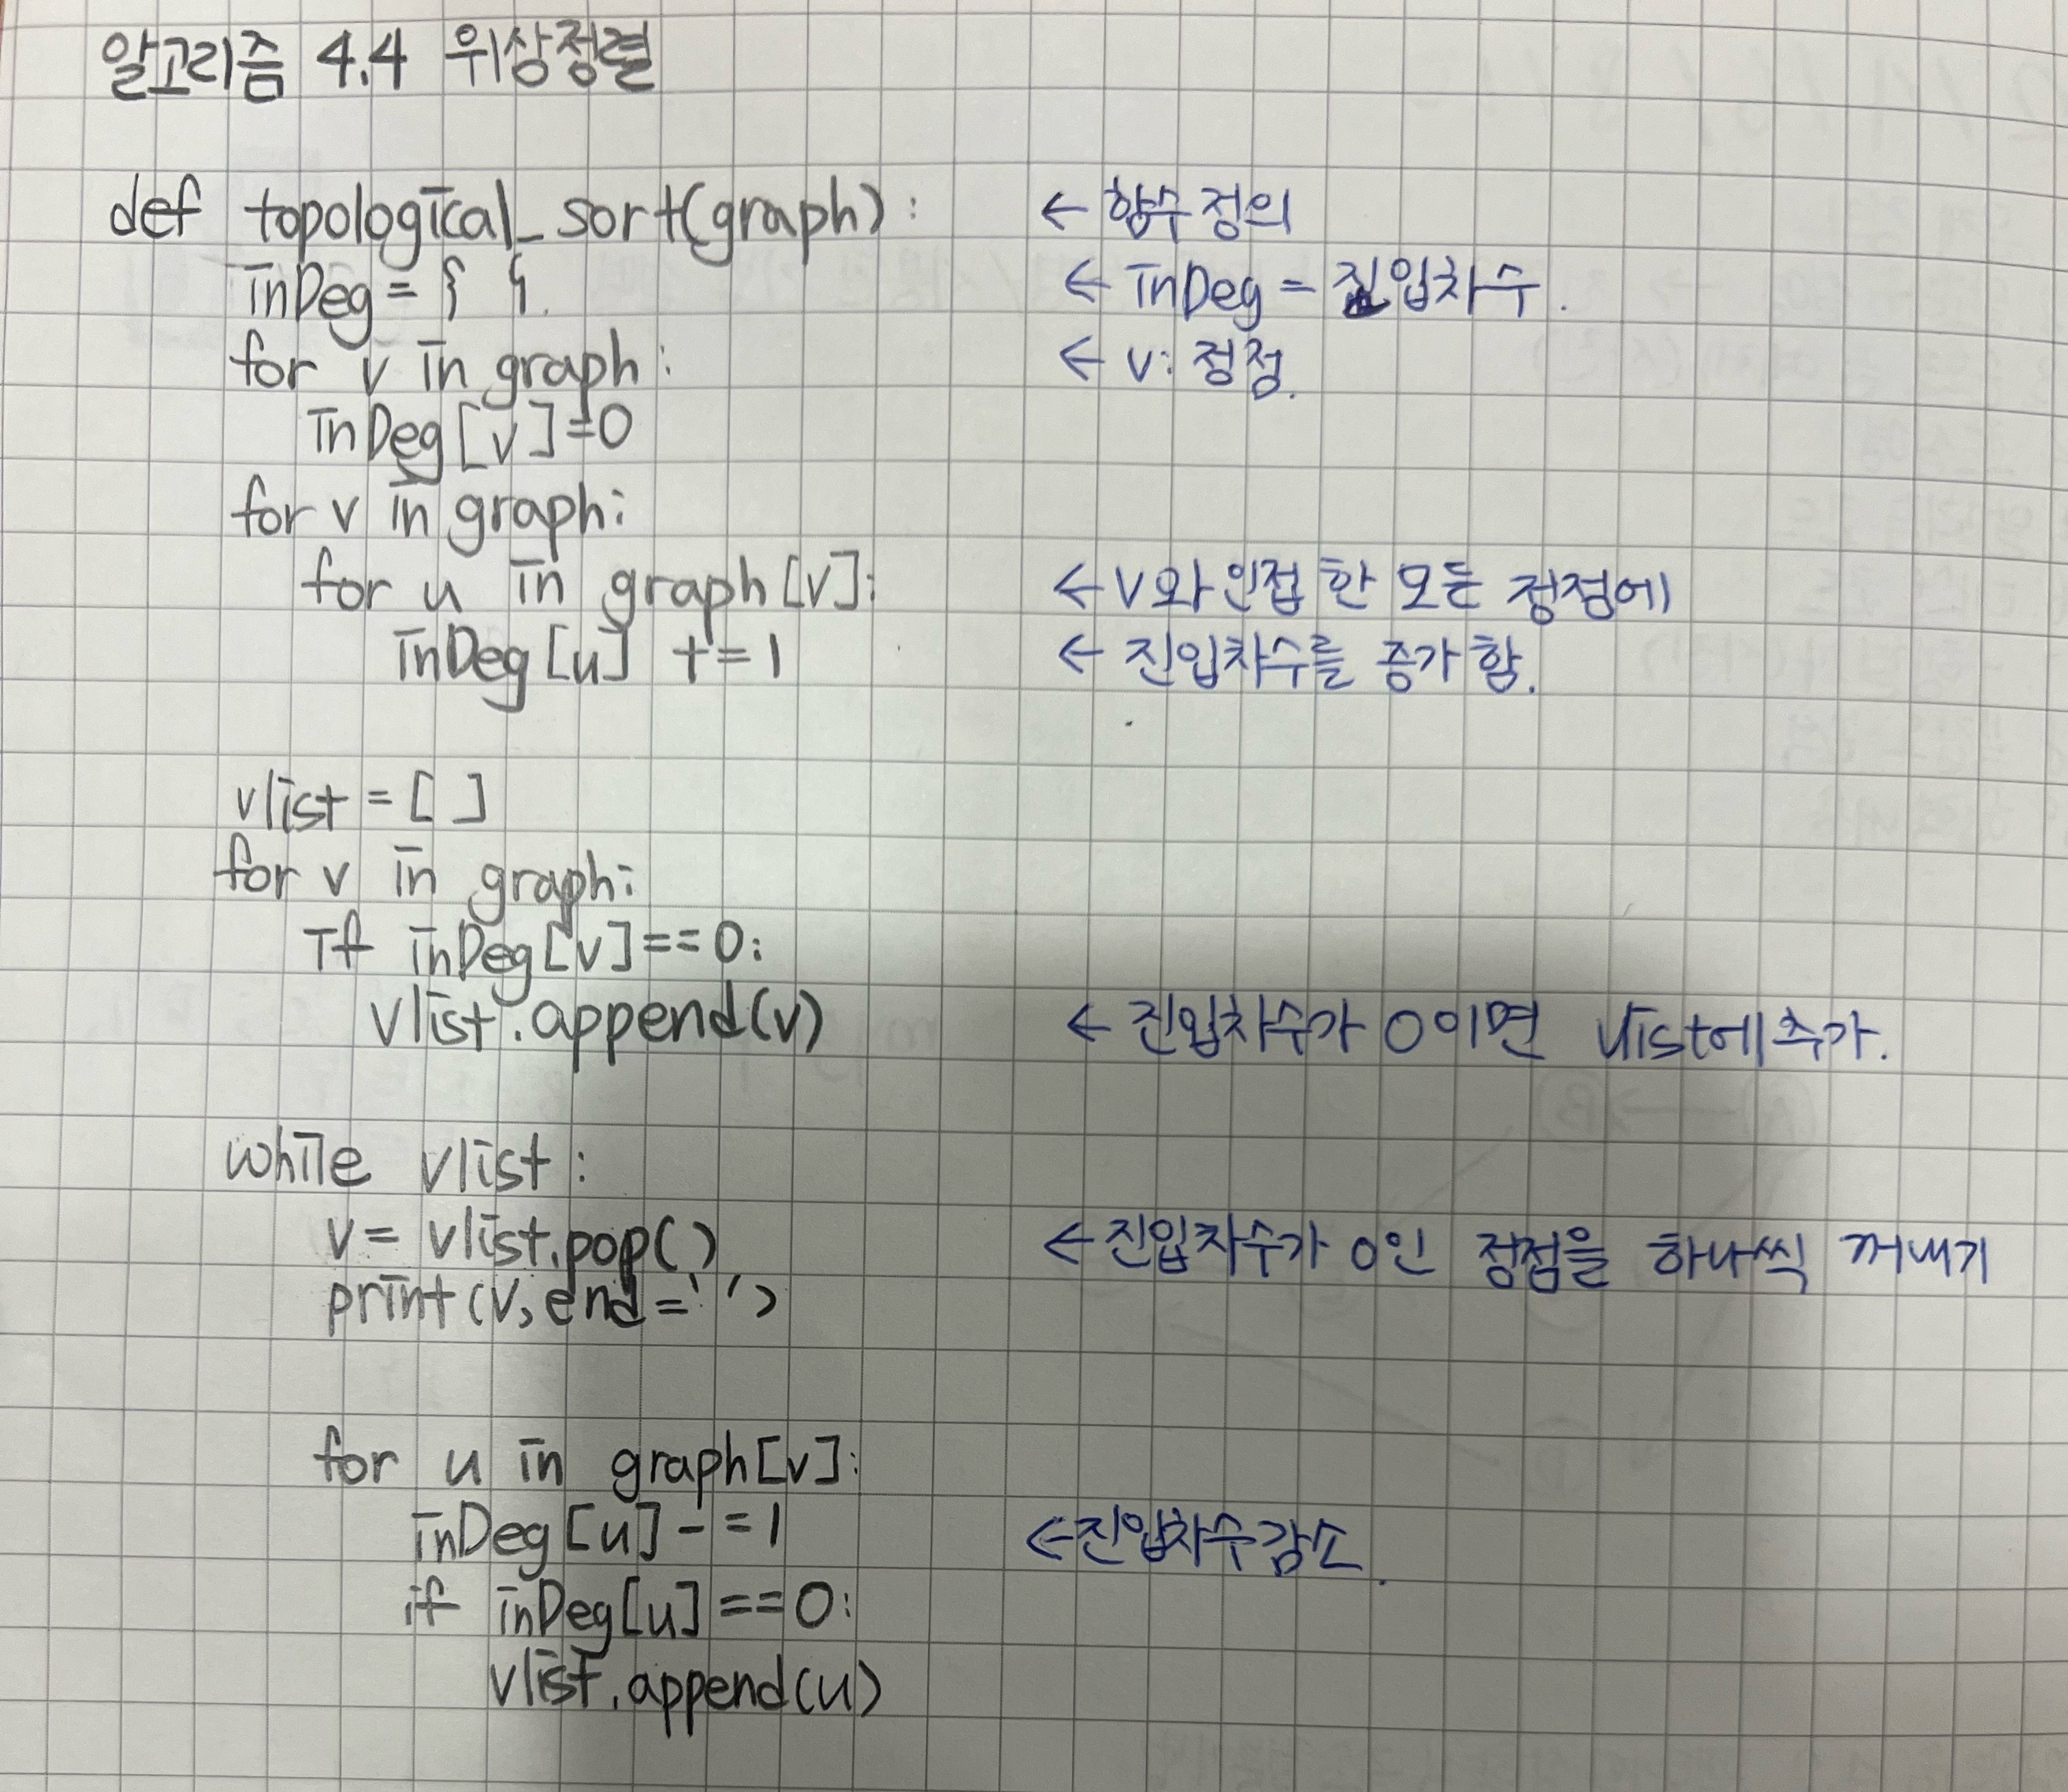 알고리즘 4.4 위상정렬
def topological_sort(graph): ← 함수정의
inDeg = { } ← inDeg - 진입차수.
for v in graph: ← v: 정점.
inDeg[v]=0
for v in graph:
for u in graph[v]: ← v와 인접한 모든 정점에
inDeg[u] += 1 ← 진입차수를 증가함.
vlist = [ ]
for v in graph:
If inDeg[v]==0:
vlist.append(v) ← 진입차수가 0이면 vlist에 추가.
while vlist:
v= vlist.pop() ← 진입차수가 0인 정점을 하나씩 꺼내기
print(v, end=' ')
for u in graph[v]:
inDeg[u] -=1 ← 진입차수감소.
if inDeg[u]==0:
vlist.append(u)